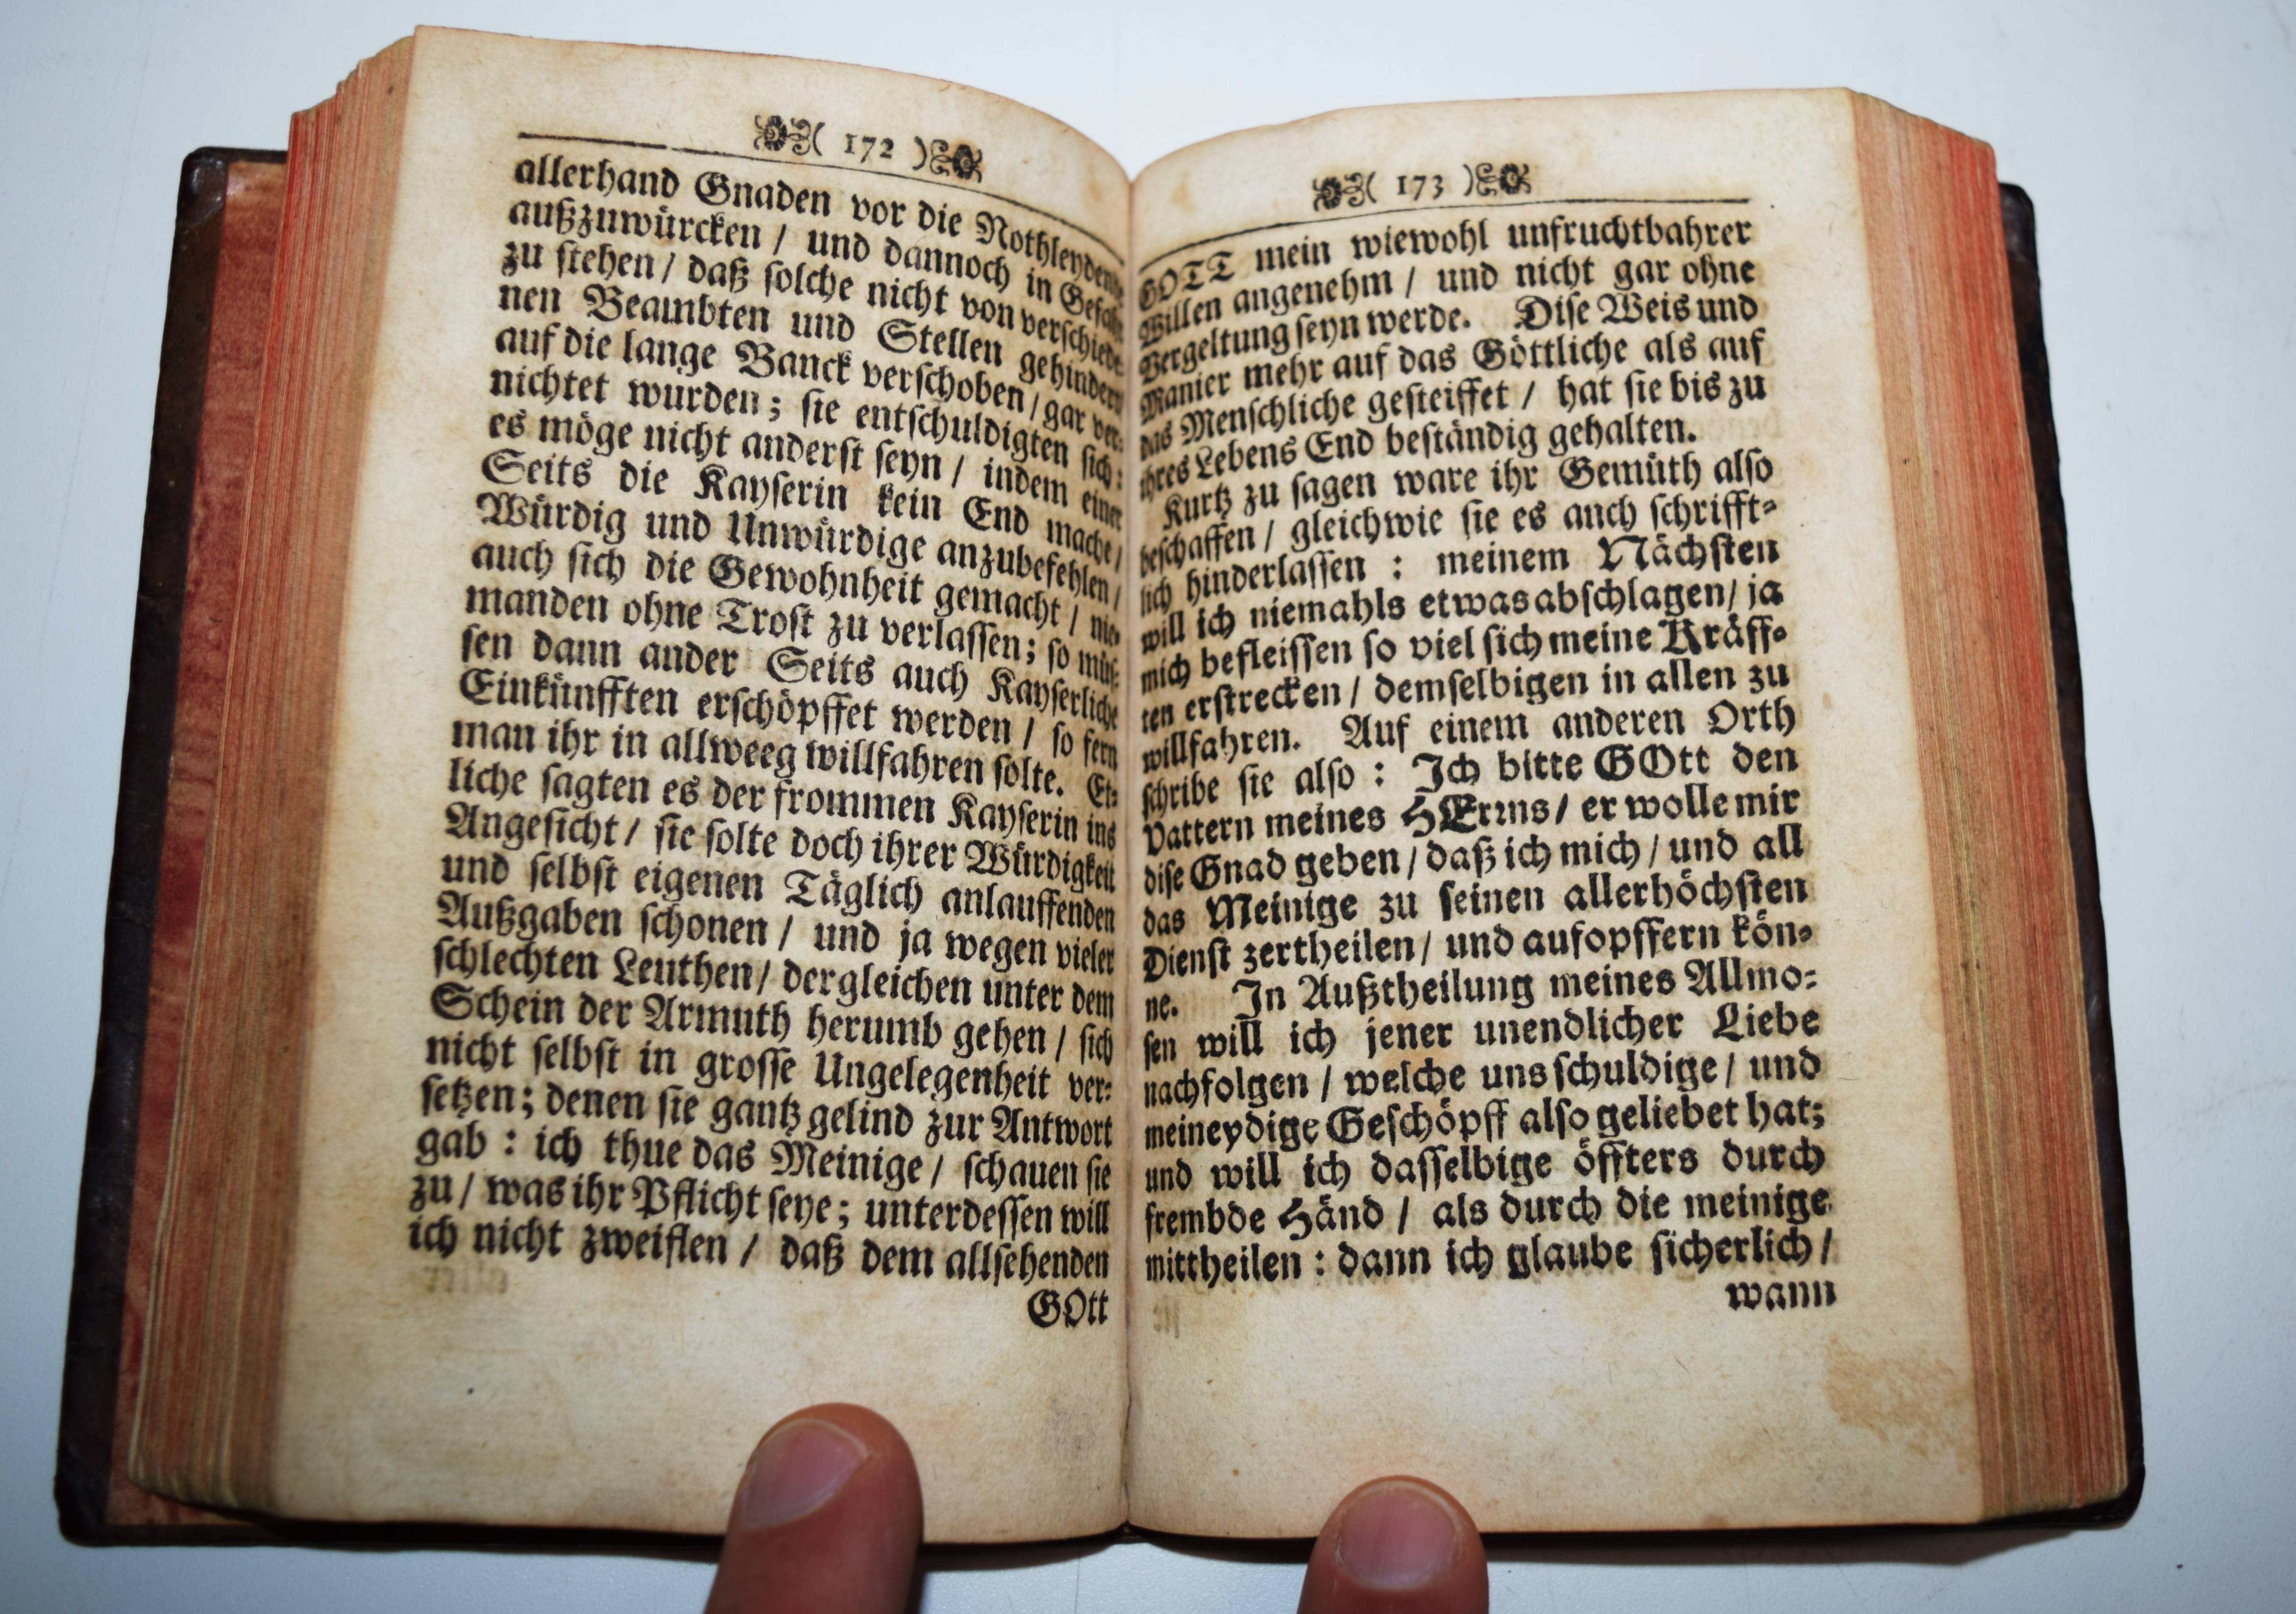 ( 172 )
allerhand Gnaden vor die Nothleydende
außzuwürcken / und dannoch in Gefahr
zu stehen / daß solche nicht von verschiede-
nen Beambten und Stellen gehindert
auf die lange Banck verschoben / gar ver-
nichtet wurden; sie entschuldigten sich:
es möge nicht anderst seyn / indem einer
Seits die Kayserin kein End mache /
Würdig und Unwürdige anzubefehlen /
auch sich die Gewohnheit gemacht / nie-
manden ohne Trost zu verlassen; so müs-
sen dann ander Seits auch Kayserliche
Einkünfften erschöpffet werden / so fern
man ihr in allweeg willfahren solte. Et-
liche sagten es der frommen Kayserin ins
Angesicht / sie solte doch ihrer Würdigkeit
und selbst eigenen Täglich anlauffenden
Außgaben schonen / und ja wegen vieler
schlechten Leuthen / dergleichen unter dem
Schein der Armuth herumb gehen / sich
nicht selbst in grosse Ungelegenheit ver-
setzen; denen sie gantz gelind zur Antwort
gab : ich thue das Meinige / schauen sie
zu / was ihr Pflicht seye; unterdessen will
ich nicht zweiflen / daß dem allsehenden
GOtt
( 173 )
GOTT mein wiewohl unfruchtbahrer
Willen angenehm / und nicht gar ohne
Vergeltung seyn werde. Dise Weis und
Manier mehr auf das Göttliche als auf
das Menschliche gesteiffet / hat sie bis zu
ihres Lebens End beständig gehalten.
Kurtz zu sagen ware ihr Gemüth also
beschaffen / gleichwie sie es auch schrifft-
lich hinderlassen : meinem Nächsten
will ich niemahls etwas abschlagen / ja
mich befleissen so viel sich meine Kräff-
ten erstrecken / demselbigen in allen zu
willfahren. Auf einem anderen Orth
schribe sie also : Ich bitte GOtt den
Vattern meines HErrns / er wolle mir
dise Gnad geben / daß ich mich / und all
das Meinige zu seinen allerhöchsten
Dienst zertheilen / und aufopffern kön-
ne. In Außtheilung meines Allmo-
sen will ich jener unendlicher Liebe
nachfolgen / welche uns schuldige / und
meineydige Geschöpff also geliebet hat;
und will ich dasselbige öffters durch
frembde Händ / als durch die meinige
mittheilen : dann ich glaube sicherlich /
wann